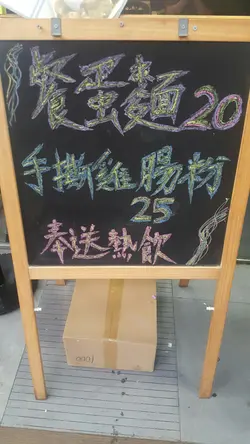 餐蛋麵20
手撕雞腸粉
25
奉送熱飲